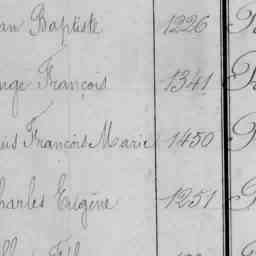 an Baptiste 1226
nge François 1341
uis François Marie 1450
harles Eugène 1251